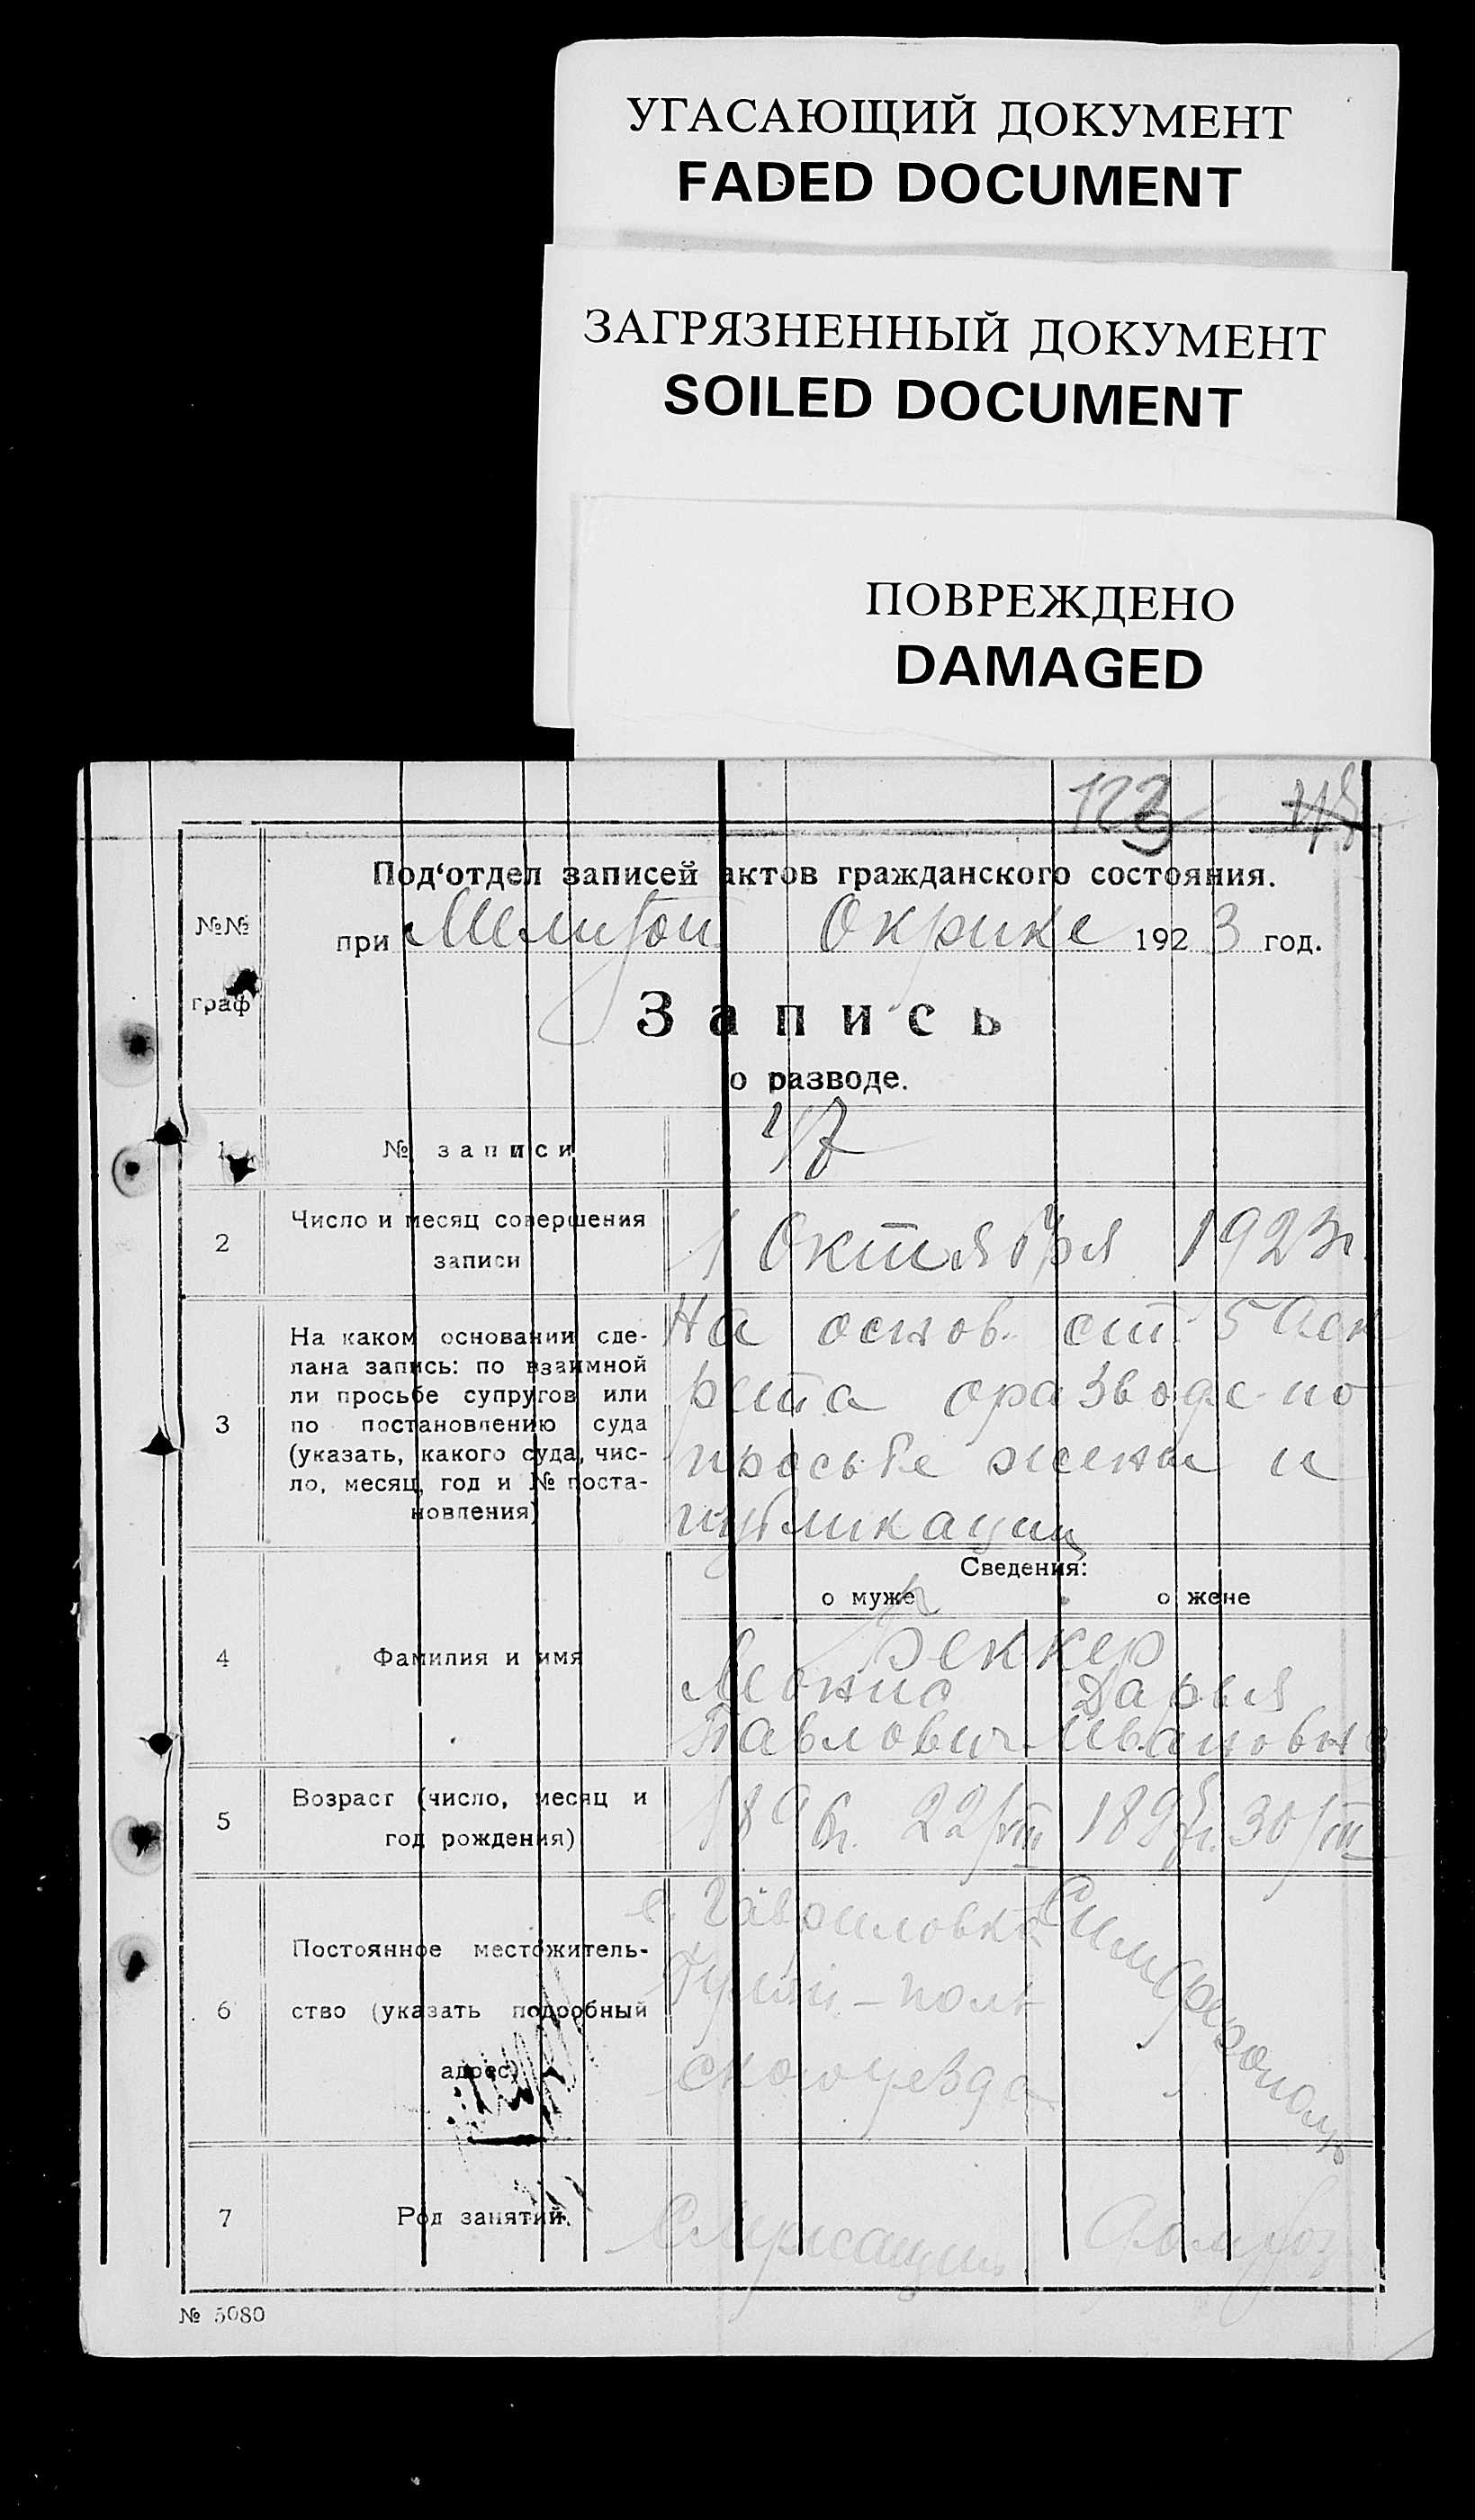 УГАСАЮЩИЙ ДОКУМЕНТ
FADED DOCUMENT
ЗАГРЯЗНЕННЫЙ ДОКУМЕНТ
SOILED DOCUMENT
ПОВРЕЖДЕНО
DAMAGED
123 48
Под‘отдел записей актов гражданского состояния.
№№ граф
при Мелитоп. Окрике 1923 год.
Запись
о разводе.
1 № записи 47
2 Число и месяц совершения
записи
1 Октября 1923г.
3 На каком основании сде-
лана запись: по взаимной
ли просьбе супругов или
по постановлению суда
(указать, какого суда, чис-
ло, месяц, год и № поста-
новления)
На основ. ст. 5
рета о разводе по
просьбе жены и
публикации
Сведения:
о муже о жене
4 Фамилия и имя
Беккер
Дарья
Павлович Ивановна
5 Возраст (число, месяц и
год рождения)
189 г. 22/VIII 1897г. 30/III
6 Постоянное местожитель-
ство (указать подробный
адрес)
с. Гавриловка
Гуляй-поль
ского уезда
Симферополь
7 Род занятий.
Служащий
№ 5080